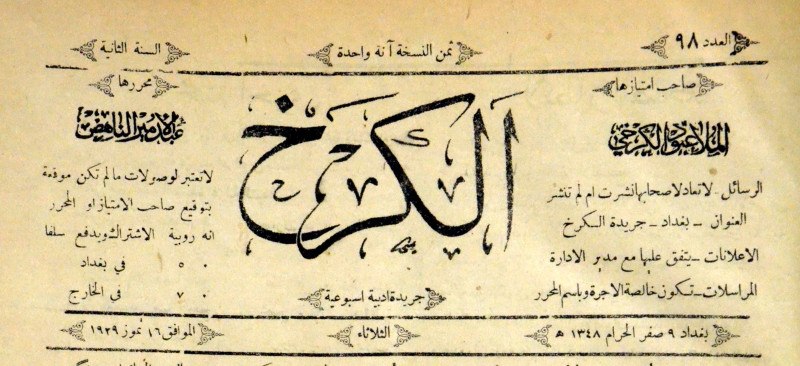 العدد ٩٨
ثمن النسخة آنة واحدة
السنة الثانية
صاحب امتيازها
الملا عبود الكرخي
الرسائل - لا تعاد لاصحابها نشرت ام لم تنشر
العنوان - بغداد - جريدة الكرخ
الاعلانات - يتفق عليها مع مدير الادارة
المراسلات - تكون خالصة الاجرة وباسم المحرر
الكرخ
جريدة ادبية اسبوعية
محررها
عبد الامير الناهض
لا تعتبر لوصولات مالم تكن موقعة
بتوقيع صاحب الامتياز او المحرر
انه روبية الاشتراك ويدفع سلفا
٠ ٥ في بغداد
٠ ٧ في الخارج
بغداد ٩ صفر الحرام ١٣٤٨ ه
الثلاثاء
الموافق ١٦ تموز ١٩٢٩